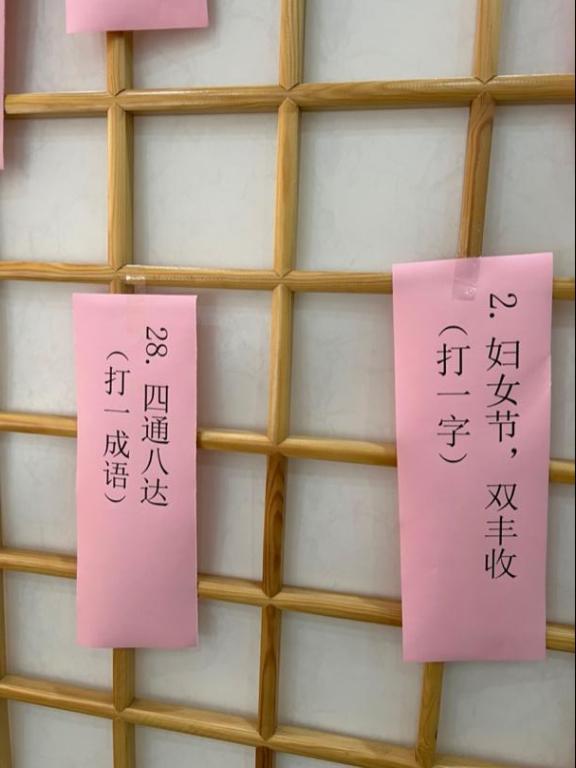 28. 四通八达
（打一成语）
2. 妇女节，双丰收
（打一字）